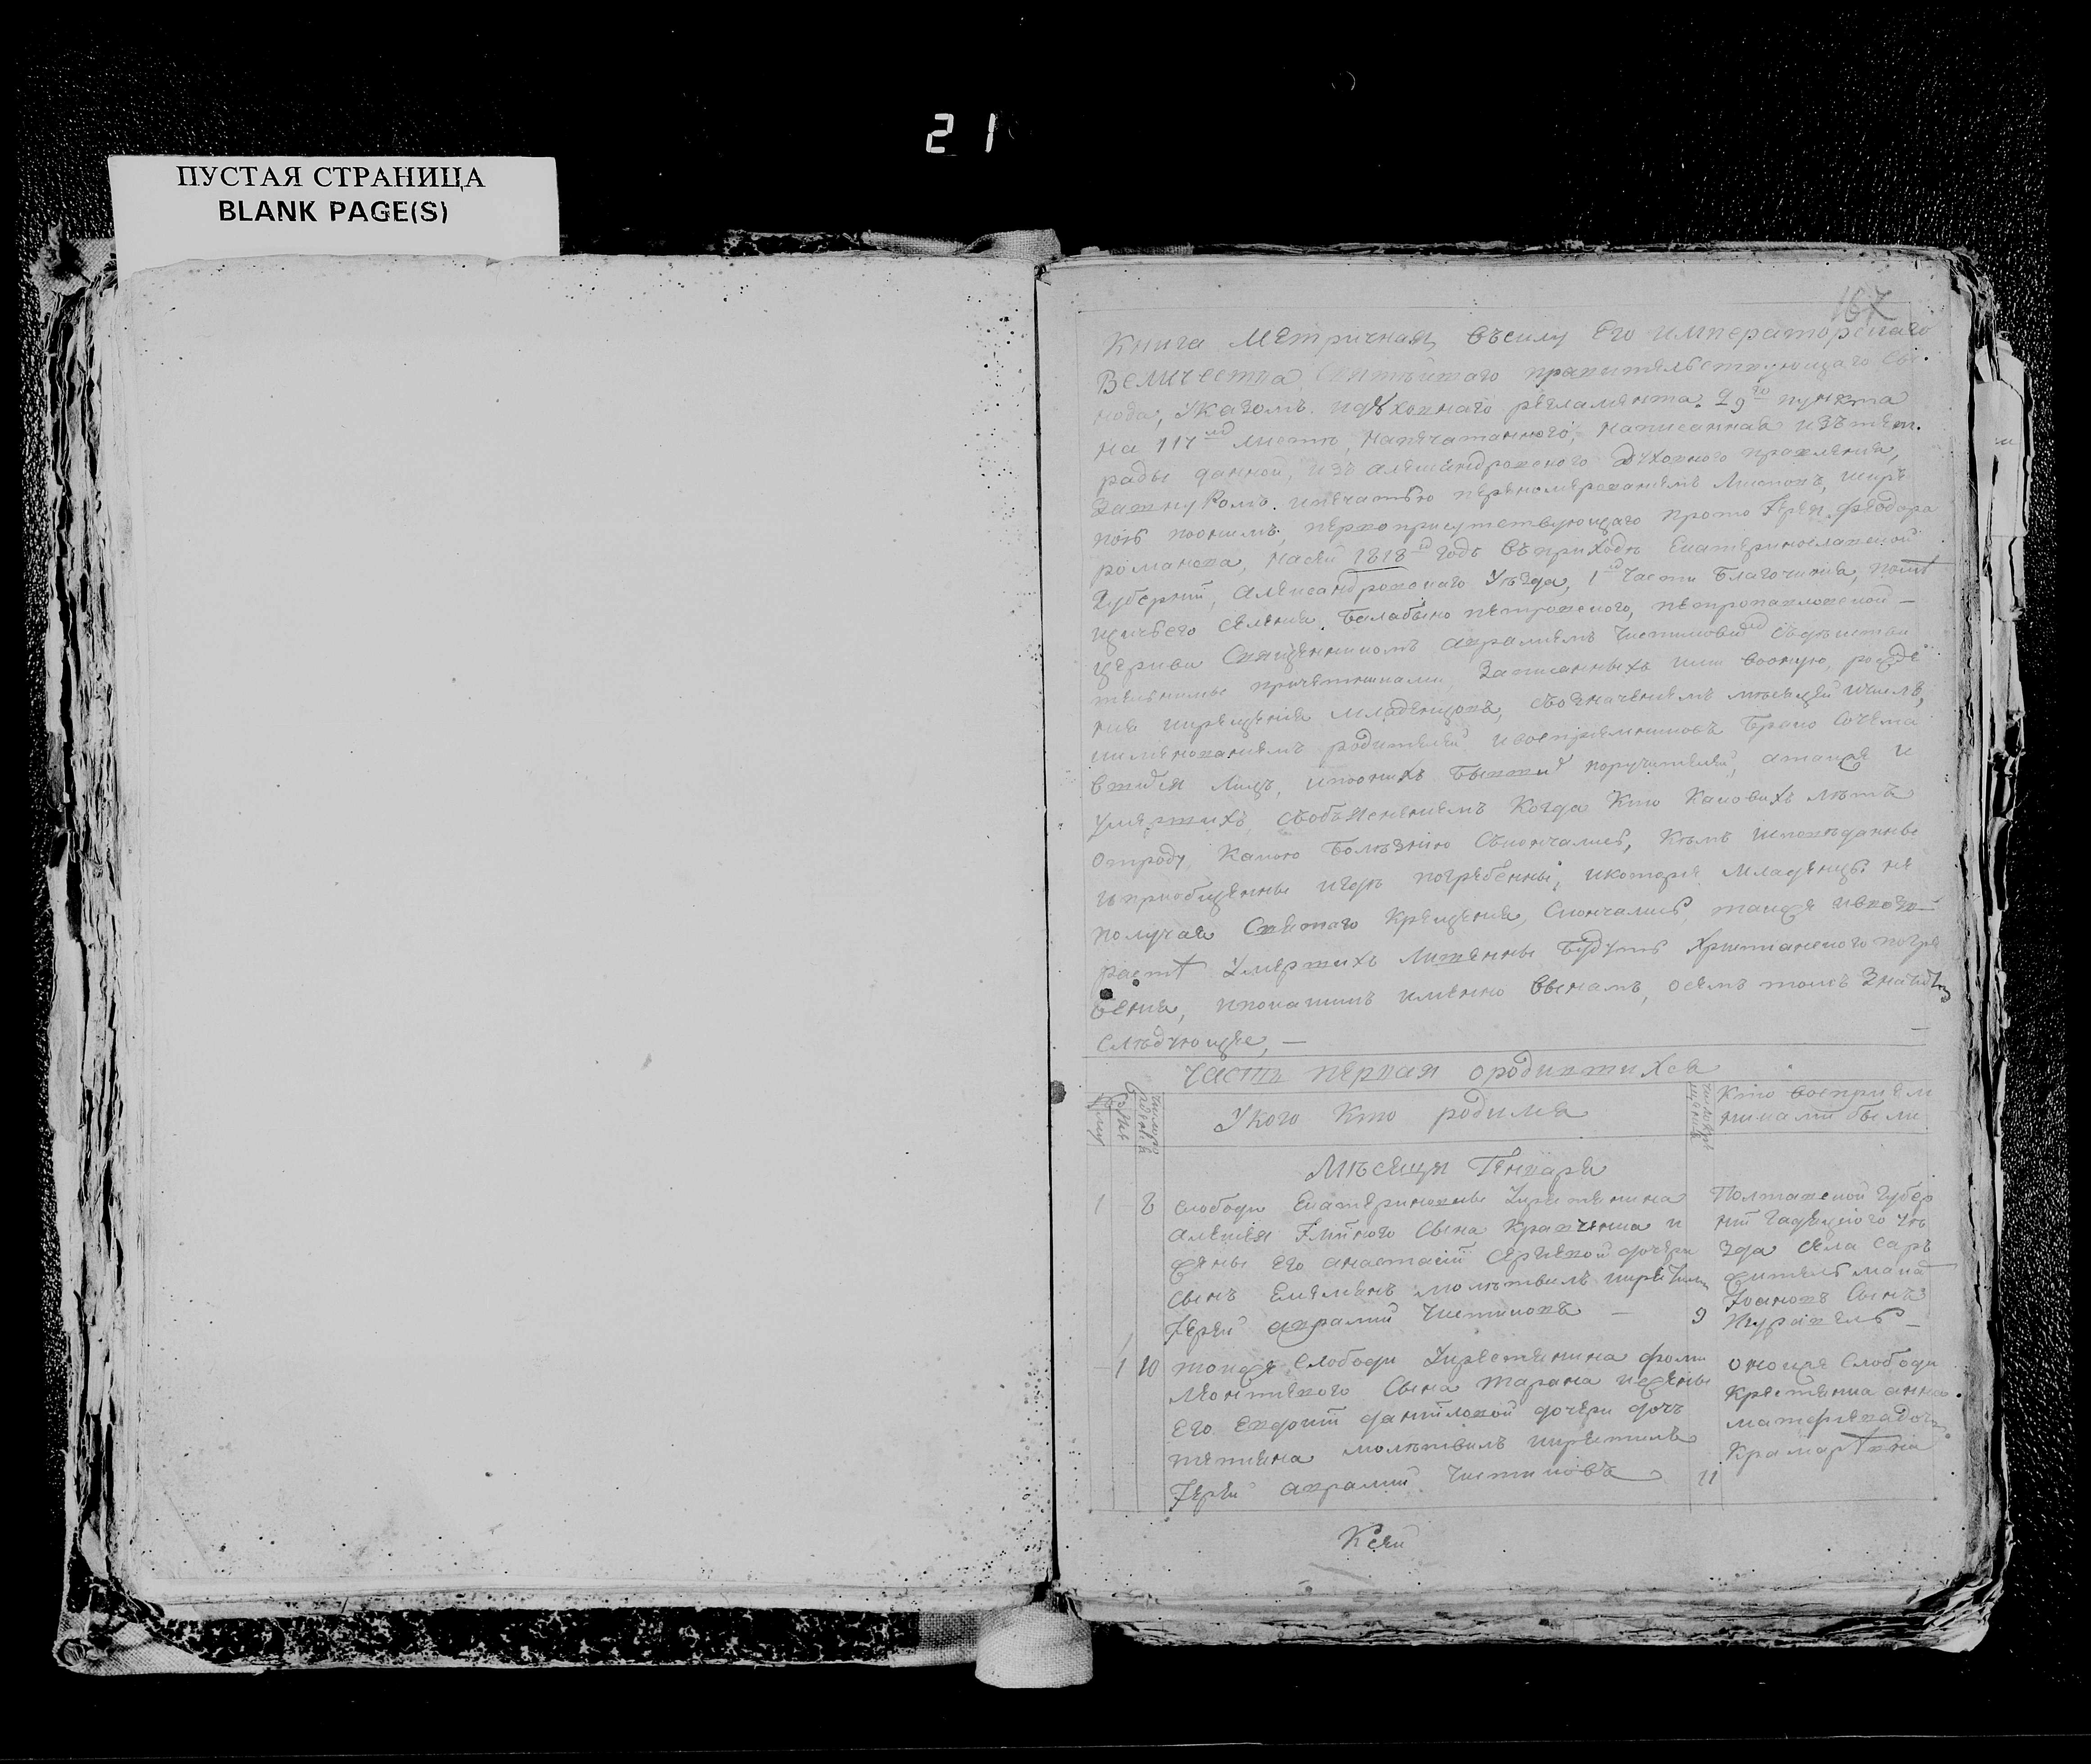 21
ПУСТАЯ СТРАНИЦА
BLANK PAGE(S)
167
Книга Метричная, въсилу Его императорскаго
Величества Святѣйшаго правительствующаго Сѵ
нода, указомъ идуховнаго регламента. 29го пункта
на 117м листѣ, напечатанного, написанная изътет.
ради данной, изъ александровского духовного правления,
Зашнуромъ. ипечатью перенумерованиемъ Листовъ,
первоприсутствующаго протоІерея. феодора
романова, насей 1818й годъ въприходѣ Екатеринославской
Губернии, Александровскаго Уѣзда, 1й Части Благочиния, помѣ
щичьего селения. Балабыно петровского, петропавловской
церкви Священникомъ авраамиемъ Чистиковим
причетниками, Записанныхъ роджде
ния икрещения младенцовъ, обозначениемъ мѣсяцей ичислъ,
иименованиемъ родителей ивосприемниковъ Брако Сочета
вшихся Лицъ, ипоонихъ бывши поручителей, атакже и
умершихъ, собъяснениемъ Когда Кто Каковихъ лѣтъ
отроду, Какою Болѣзнию Скончались, Кѣмъ исповѣданны
иприобщенны игдѣ погребенны, икоторие Младенцы не
получая Святаго Крещения, Скончались. также
Умершихъ Лишенны Будутъ Христианского погре
бения, ипокакимъ именно Винамъ, осемъ томъ
слѣдующее, —
Часть первая ородившихся
Укого Кто родился
Кто восприем
никами были
Мѣсяця Генваря
1 8 слободи Екатериновки Крестянина
Алексея Сина Кравченка и
жены Его анастасии Сергиевой дочери
синъ Емелианъ молитвилъ икрестилъ
Іерей авраамий Чистиковъ — 9
Полтавской Губер
нии Гадяцкого уѣ
зда села Саръ
житель
Іоановъ Синъ
Журавель —
1 10 тояже Слободи Крестянина фоми
Леонтиевого Сина Тарана ижены
Его Евдокии даниловой дочери дочъ
татиана молитвилъ икрестилъ
Іерей авраамий Чистиковъ 11
оноиже Слободи
Крестянка анна
матфиева доч
Крамаревна
Ксей